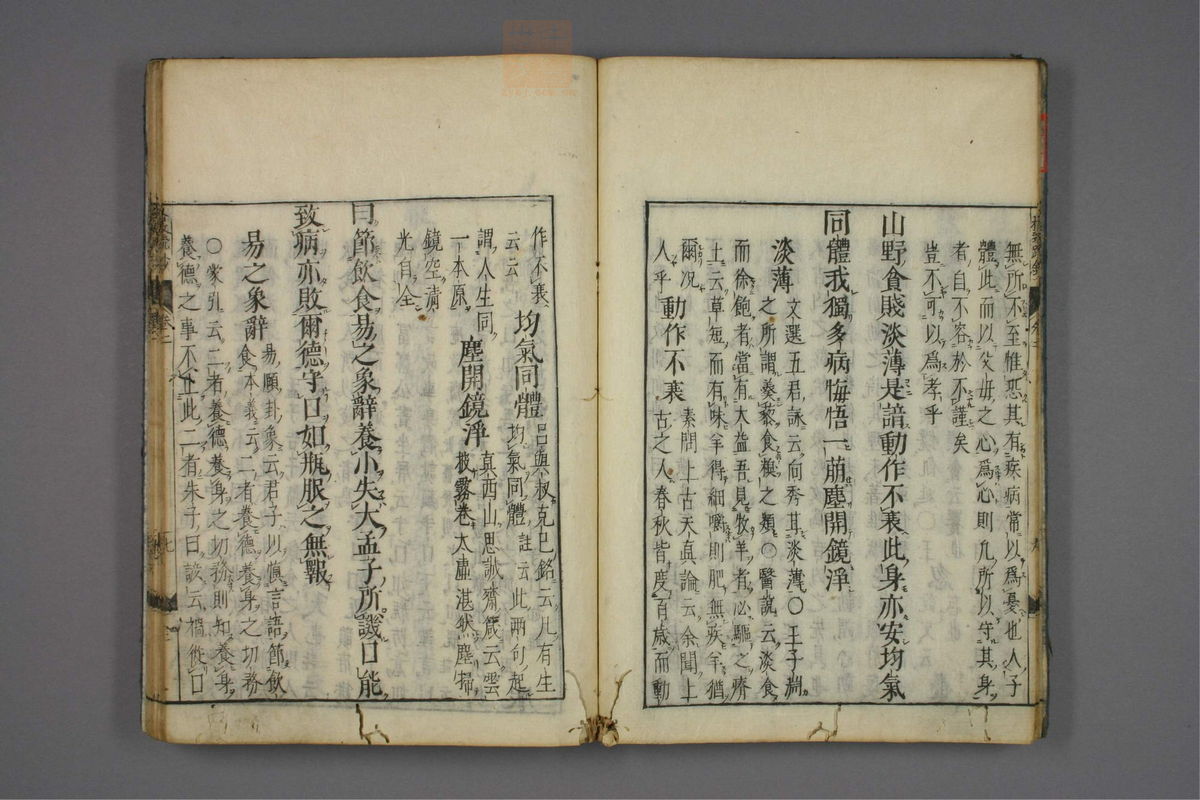 無所不至惟恐其有疾病常以爲憂也人子
體此而以父母之心爲心則凡所以守其身
者自不容於不謹矣
豈不可以爲孝乎
山野貧賤淡薄是諳動作不衰此身亦安均氣
同體我獨多病悔悟一萠塵開鏡淨
淡薄 文選五君詠云向秀甘淡薄〇王子淵
之所謂羹藜食糗之類〇醫說云淡食
而徐飽者當有大益吾見牧羊者必驅之瘠
土云草短而有味羊得細嚼則肥無疾羊猶
爾况 素問上古天眞論云余聞上
人乎 動作不衰 古之人春秋皆度百歲而動
作不衰 均氣同體 呂與叔克己銘云凡有生
云云 均氣同體註云此兩句起
謂人生同 塵開鏡淨 眞西山思誠齋箴云雲
一本原 披霧卷太虛湛然塵掃
鏡空清
光自全
曰節飲食易之象辭養小失大孟子所譏口能
致病亦敗爾德守口如瓶服之無斁
易之象辭 易頤卦象云君子以愼言語節飲
食本義云二者養德養身之切務
〇蒙引云二者養德養身之切務則知養身
養德之事不止此二者朱子曰諺云禍從口